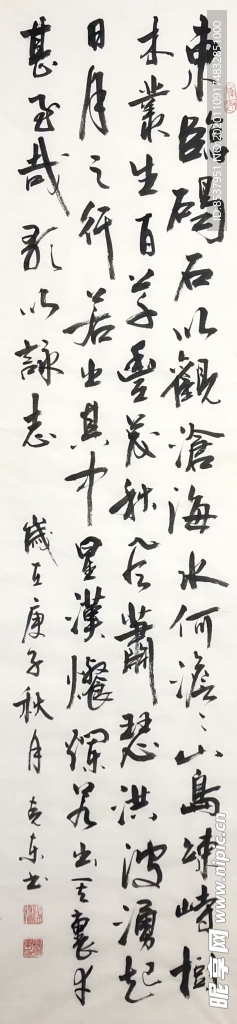 東臨碣石以觀滄海水何澹〻山島竦峙樹
木叢生百草豐茂秋風蕭瑟洪波湧起
日月之行若出其中星漢燦爛若出其裏幸
甚至哉歌以詠志
歲在庚子秋月
东書
昵图网 www.nipic.cn